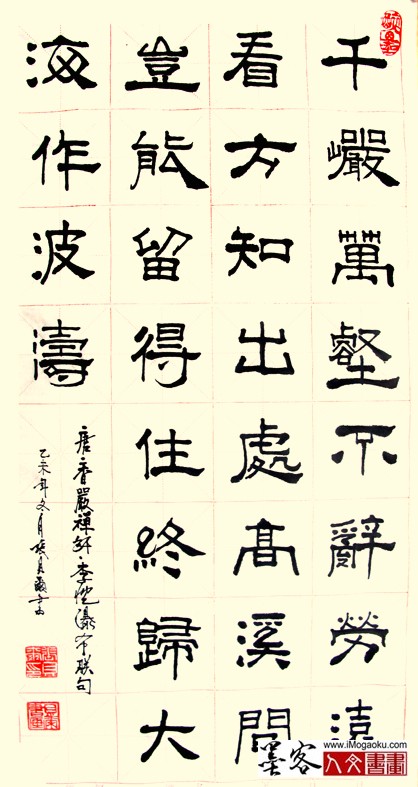 千巖萬壑不辭勞遠
看方知出處高溪間
豈能留得住終歸大
海作波濤
唐·香嚴禪師·李忱瀑布联句
乙未年冬月
墨客
www.iMogaoku.com
人文書畫